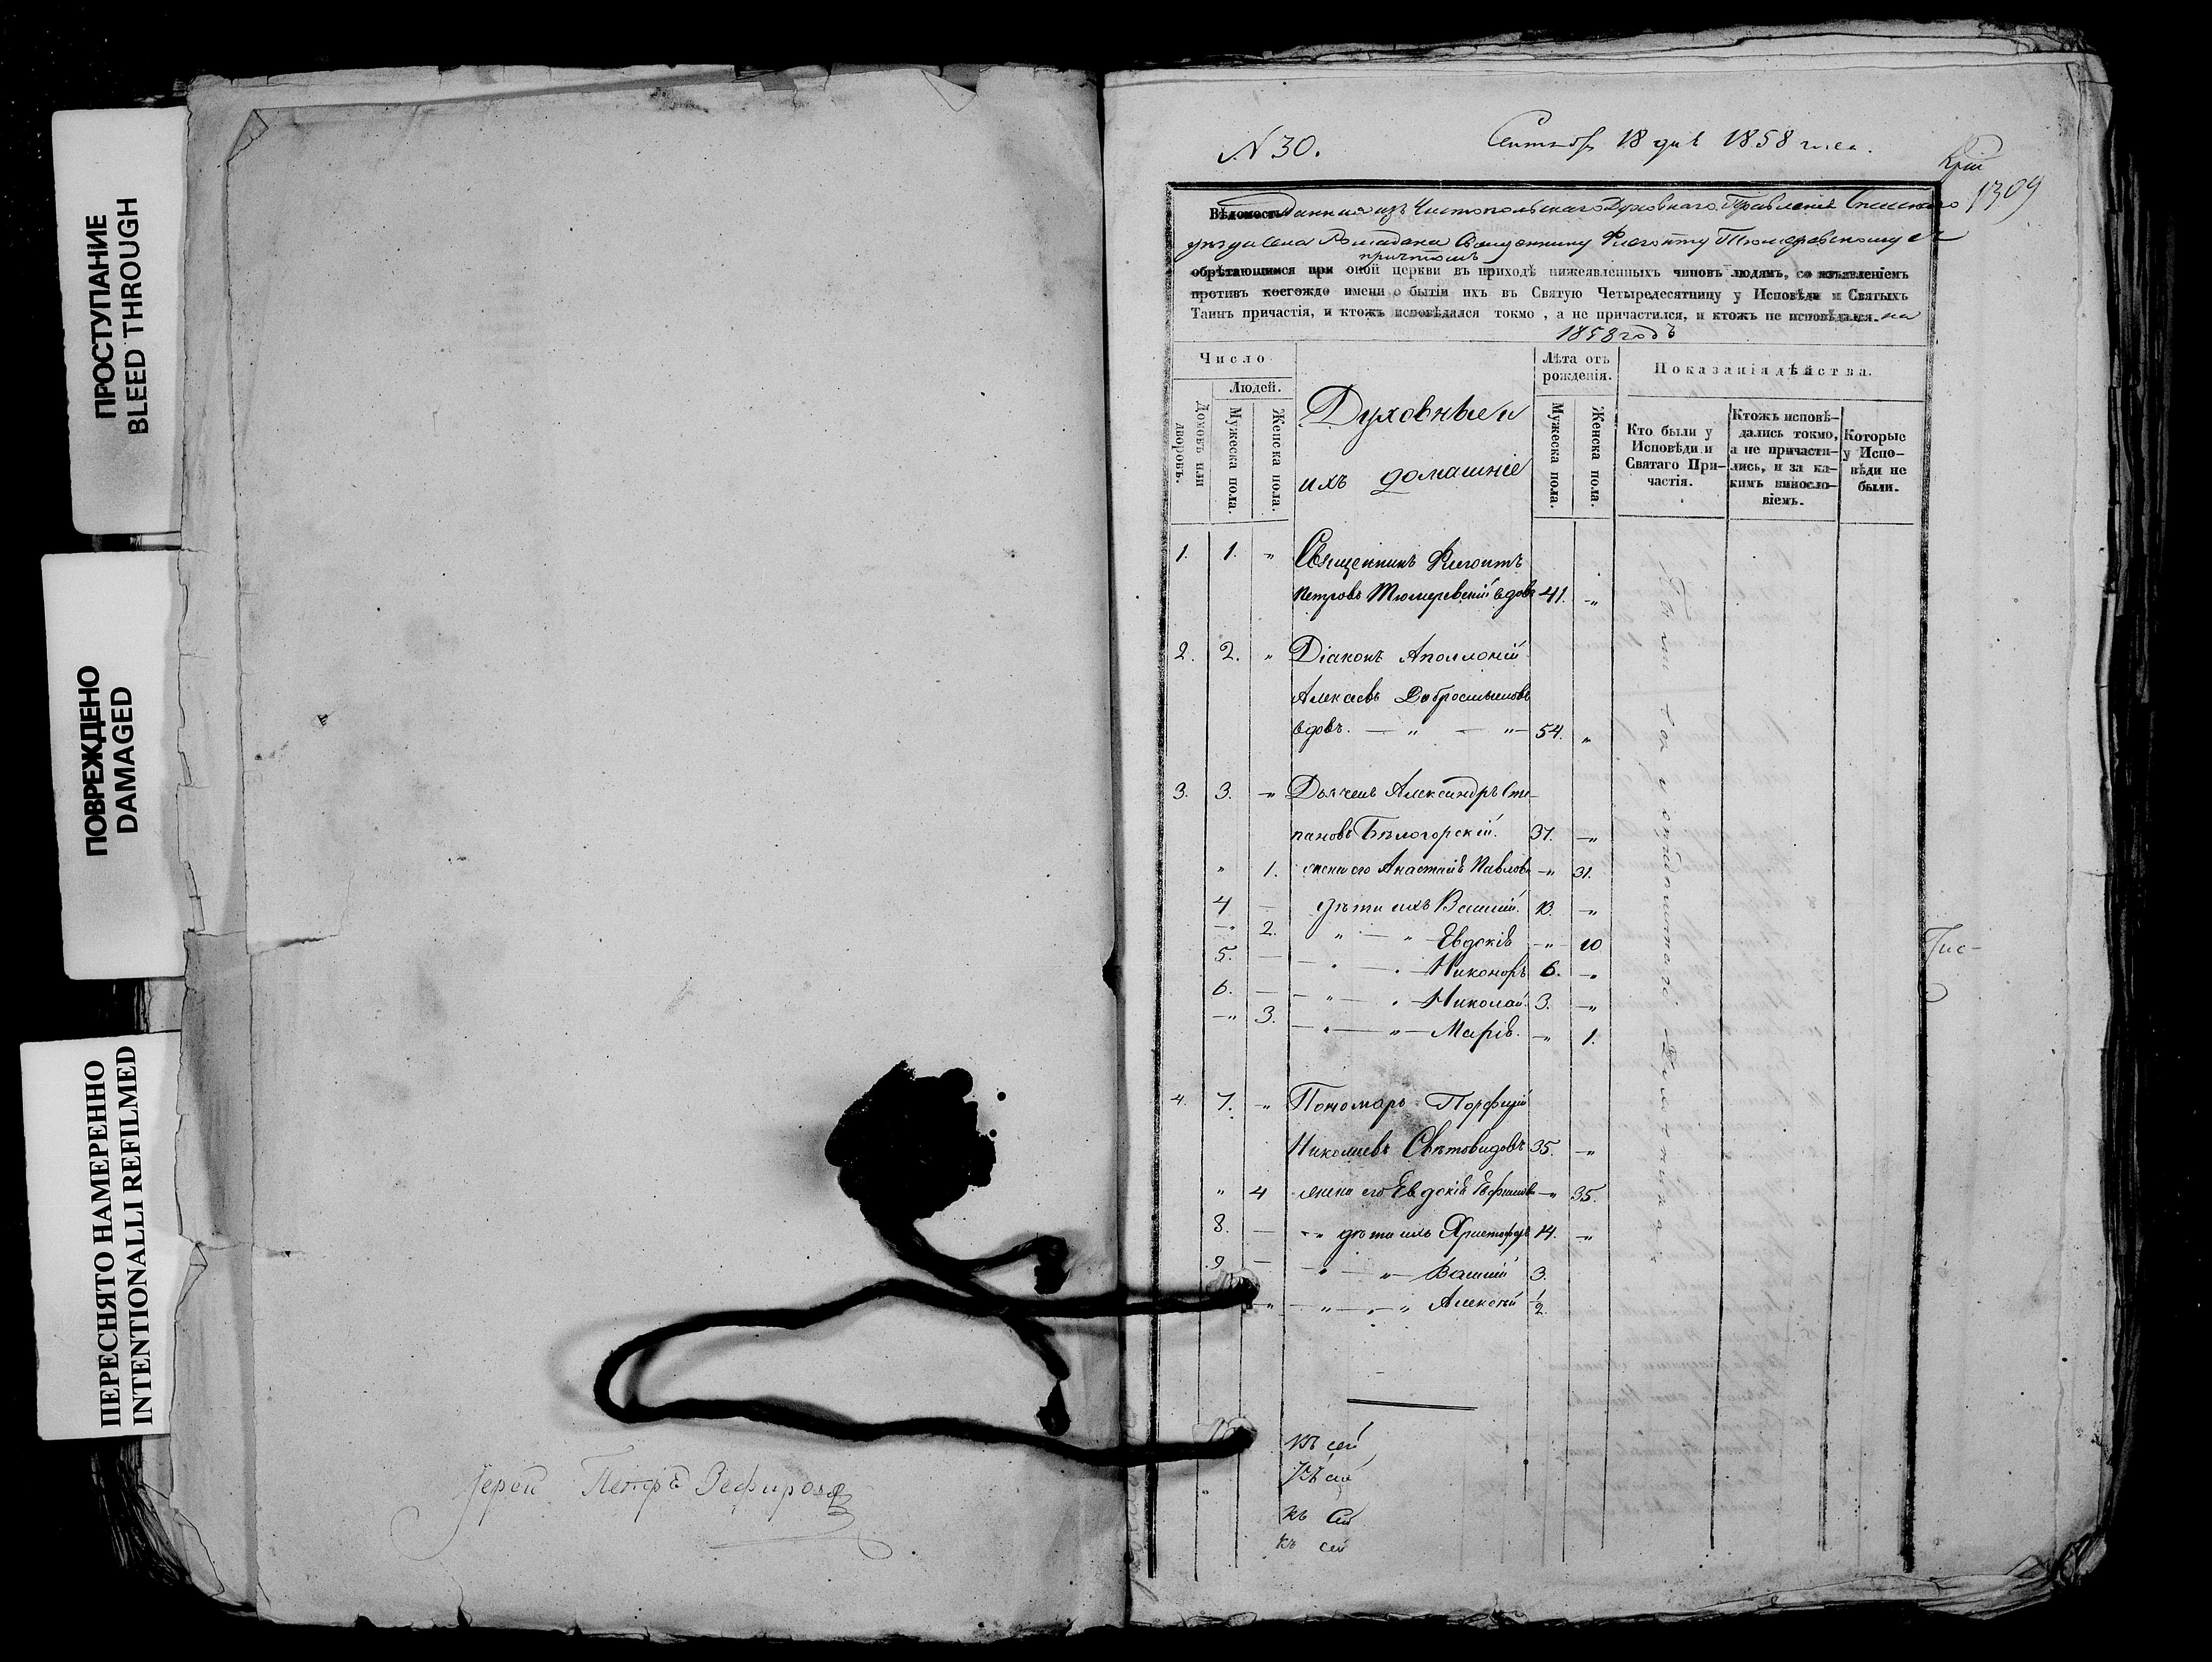 ПРОСТУПАНИЕ
BLEED THROUGH
ПОВРЕЖДЕНО
DAMAGED
ПЕРЕСНЯТО НАМЕРЕННО
INTENTIONALLI REFILMED
Іерей Петръ Зефировъ
N 30.
18 дня 1858 года.
1309
Вѣдомость Данная изъ Чистопольскаго Духовнаго Правленія Спасскаго
уѣзда села Рамадана Священнику Флегонту Тюмеревскому съ
причтомъ
обрѣтающимся при оной церкви въ приходѣ нижеявленныхъ чиновъ людямъ, со изъявленіемъ
противъ коегождо имени о бытіи ихъ въ Святую Четыредесятницу у Исповѣди и Святыхъ
Таинъ причастія, и ктожъ исповѣдался токмо, а не причастился, и ктожъ не исповѣдался. на
1858 годъ
Число
Людей.
Домовъ или дворовъ.
Мужеска пола.
Женска пола.
Духовные и
ихъ домашніе
Лѣта отъ рожденія.
Мужеска пола.
Женска пола.
Показанія дѣйства.
Кто были у Исповѣди и Святаго Причастія.
Ктожъ исповѣдались токмо, а не причастились, и за какимъ винословіемъ.
Которые у Исповѣди не были.
1. 1. " Священникъ Флегонтъ
Петровъ Тюмеревскій вдовъ 41. "
2. 2. " Діаконъ Аполлоній
Алексѣевъ Добросмысловъ
вдовъ. — " — " — 54. "
3. 3. " Дьячекъ Александръ Сте-
пановъ Бѣлогорскій. 37. "
" 1. жена его Анастасія Павлова " 31.
4 — дѣти ихъ Василій. 13. "
" 2. " — " Евдокія " 10
5. — " — " Никоноръ 6. "
6. — " — " Николай 3. "
" 3. " — " Марія. " 1.
4. 7. " Пономарь Порфирій
Николаевъ Свѣтовидовъ 35. "
" 4 жена его Евдокія " 35.
8. — " дѣти ихъ Христофоръ 14. "
9. — " " Василій 3.
" " " Алексѣй ½
къ сей
къ сей
къ сей
къ сей